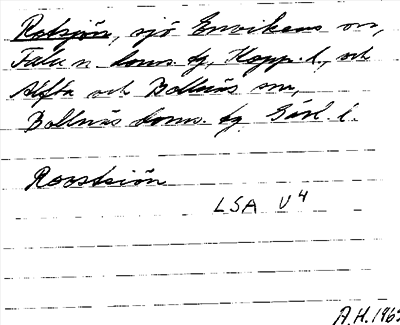 Rotsjön, sjö Envikens sn,
Falu n. doms. tg, Kopp. l., och
Alfta och Bollnäs snr,
Bollnäs doms. tg Gävl. l.
Roostsiön
LSA V4
A.H.196